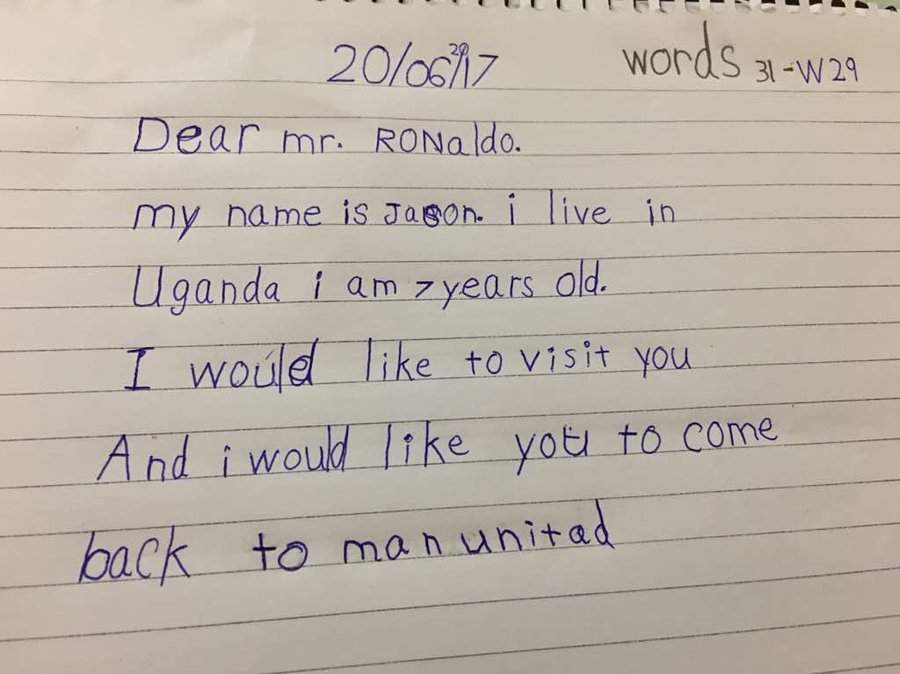 20/06/2017 words 31-W29
Dear mr. RONaldo.
my name is Jason. i live in
Uganda i am 7 years old.
I would like to visit you
And i would like you to come
back to man unitad